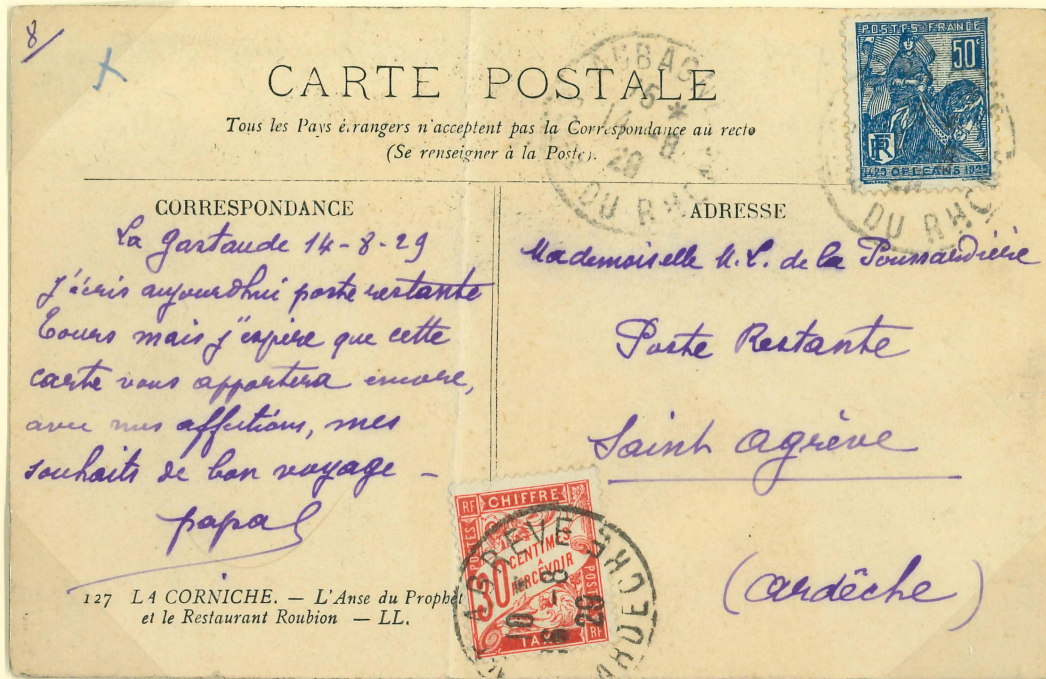 8/
CARTE POSTALE
Tous les Pays étrangers n'acceptent pas la Correspondance au recto
(Se renseigner à la Poste).
POSTES-FRANCE
50c
RF
1429 ORLEANS 1929
AUBAGNE
15 *
14 8
29
DU RHONE
DU RHO
CORRESPONDANCE
La Gastaude 14-8-29
J'écris aujourdhui poste restante
Tours mais j'espère que cette
carte vous apportera encore,
avec mes affections, mes
souhaits de bon voyage –
papa
127 LA CORNICHE. — L'Anse du Prophèt
et le Restaurant Roubion — LL.
ADRESSE
Mademoiselle M. L. de la
Poste Restante
Saint Agrève
(Ardèche)
RF CHIFFRE
POSTES
30 CENTIMES
A
PERCEVOIR
POSTES
TAXE RF
AGREVE
10
-8
29
ARDECHE